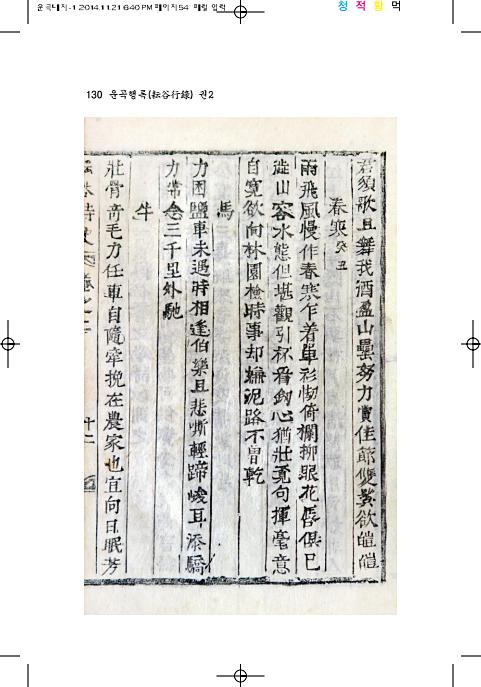 운곡내지-1 2014.11.21 6:40 PM 페이지54 매킬 입력
청 적 황 먹
130 운곡행록(耘谷行錄) 권2
君須歌且舞我酒盈山罍努力賞佳節雙鬢欲皚皚
春寒 癸丑
雨飛風慢作春寒乍着單衫怯倚欄柳眼花脣俱已
遊山容水態但堪觀引杯看劍心猶壯覓句揮毫意
自寬欲向林園檢時事却嫌泥路不曾乾
馬
力困鹽車未遇時相逢伯樂且悲嘶輕蹄峻耳添驕
力常念三千里外馳
牛
壯骨奇毛力任車自隨牽挽在農家也宜向日眠芳
十二